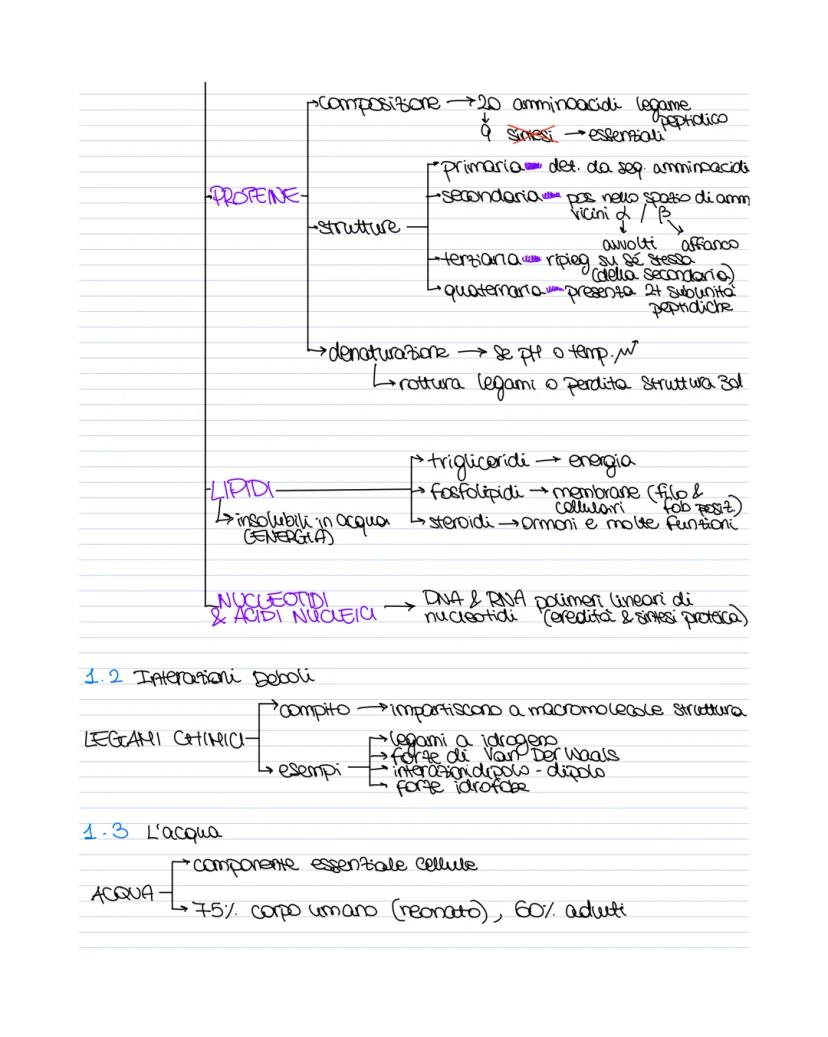 composizione → 20 amminoacidi legame
peptidico
↓
9 sintesi → essenziali
PROTEINE
strutture
primaria det. da seq. amminoacidi
secondaria pos nello spazio di amm
vicini α / β
avvolti affianco
terziaria ripieg su sé stessa
(della secondaria)
quaternaria presenta 2+ subunità
peptidiche
denaturazione → se pH o temp.
rottura legami o perdita struttura 3d
LIPIDI
insolubili in acqua
(ENERGIA)
trigliceridi → energia
fosfolipidi → membrane (filo &
cellulari fob posiz.)
steroidi → ormoni e molte funzioni
NUCLEOTIDI
& ACIDI NUCLEICI → DNA & RNA polimeri lineari di
nucleotidi (eredità & sintesi proteica)
1.2 Interazioni Deboli
LEGAMI CHIMICI
compito → impartiscono a macromolecole struttura
esempi
legami a idrogeno
forze di Van Der Waals
interazioni dipolo - dipolo
forze idrofobe
1.3 L'acqua
ACQUA
componente essenziale cellule
75% corpo umano (neonato), 60% adulti